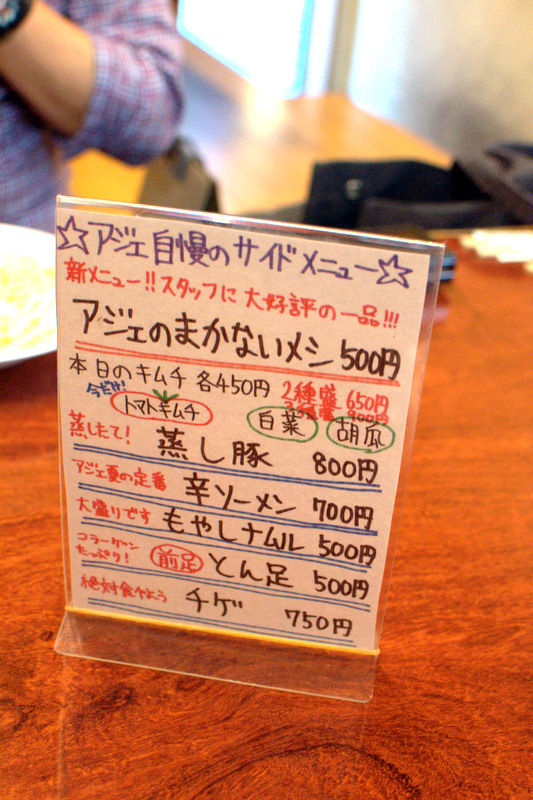 ☆アジェ自慢のサイドメニュー☆
新メニュー!!スタッフに大好評の一品!!!
アジェのまかないメシ 500円
本日のキムチ 各450円 2種盛 650円
今だけ! 3種盛 900円
トマトキムチ 白菜 胡瓜
蒸したて! 蒸し豚 800円
アジェ夏の定番 辛ソーメン 700円
大盛りです もやしナムル 500円
コラーゲン
たっぷり! 前足 とん足 500円
絶対食べよう チゲ 750円